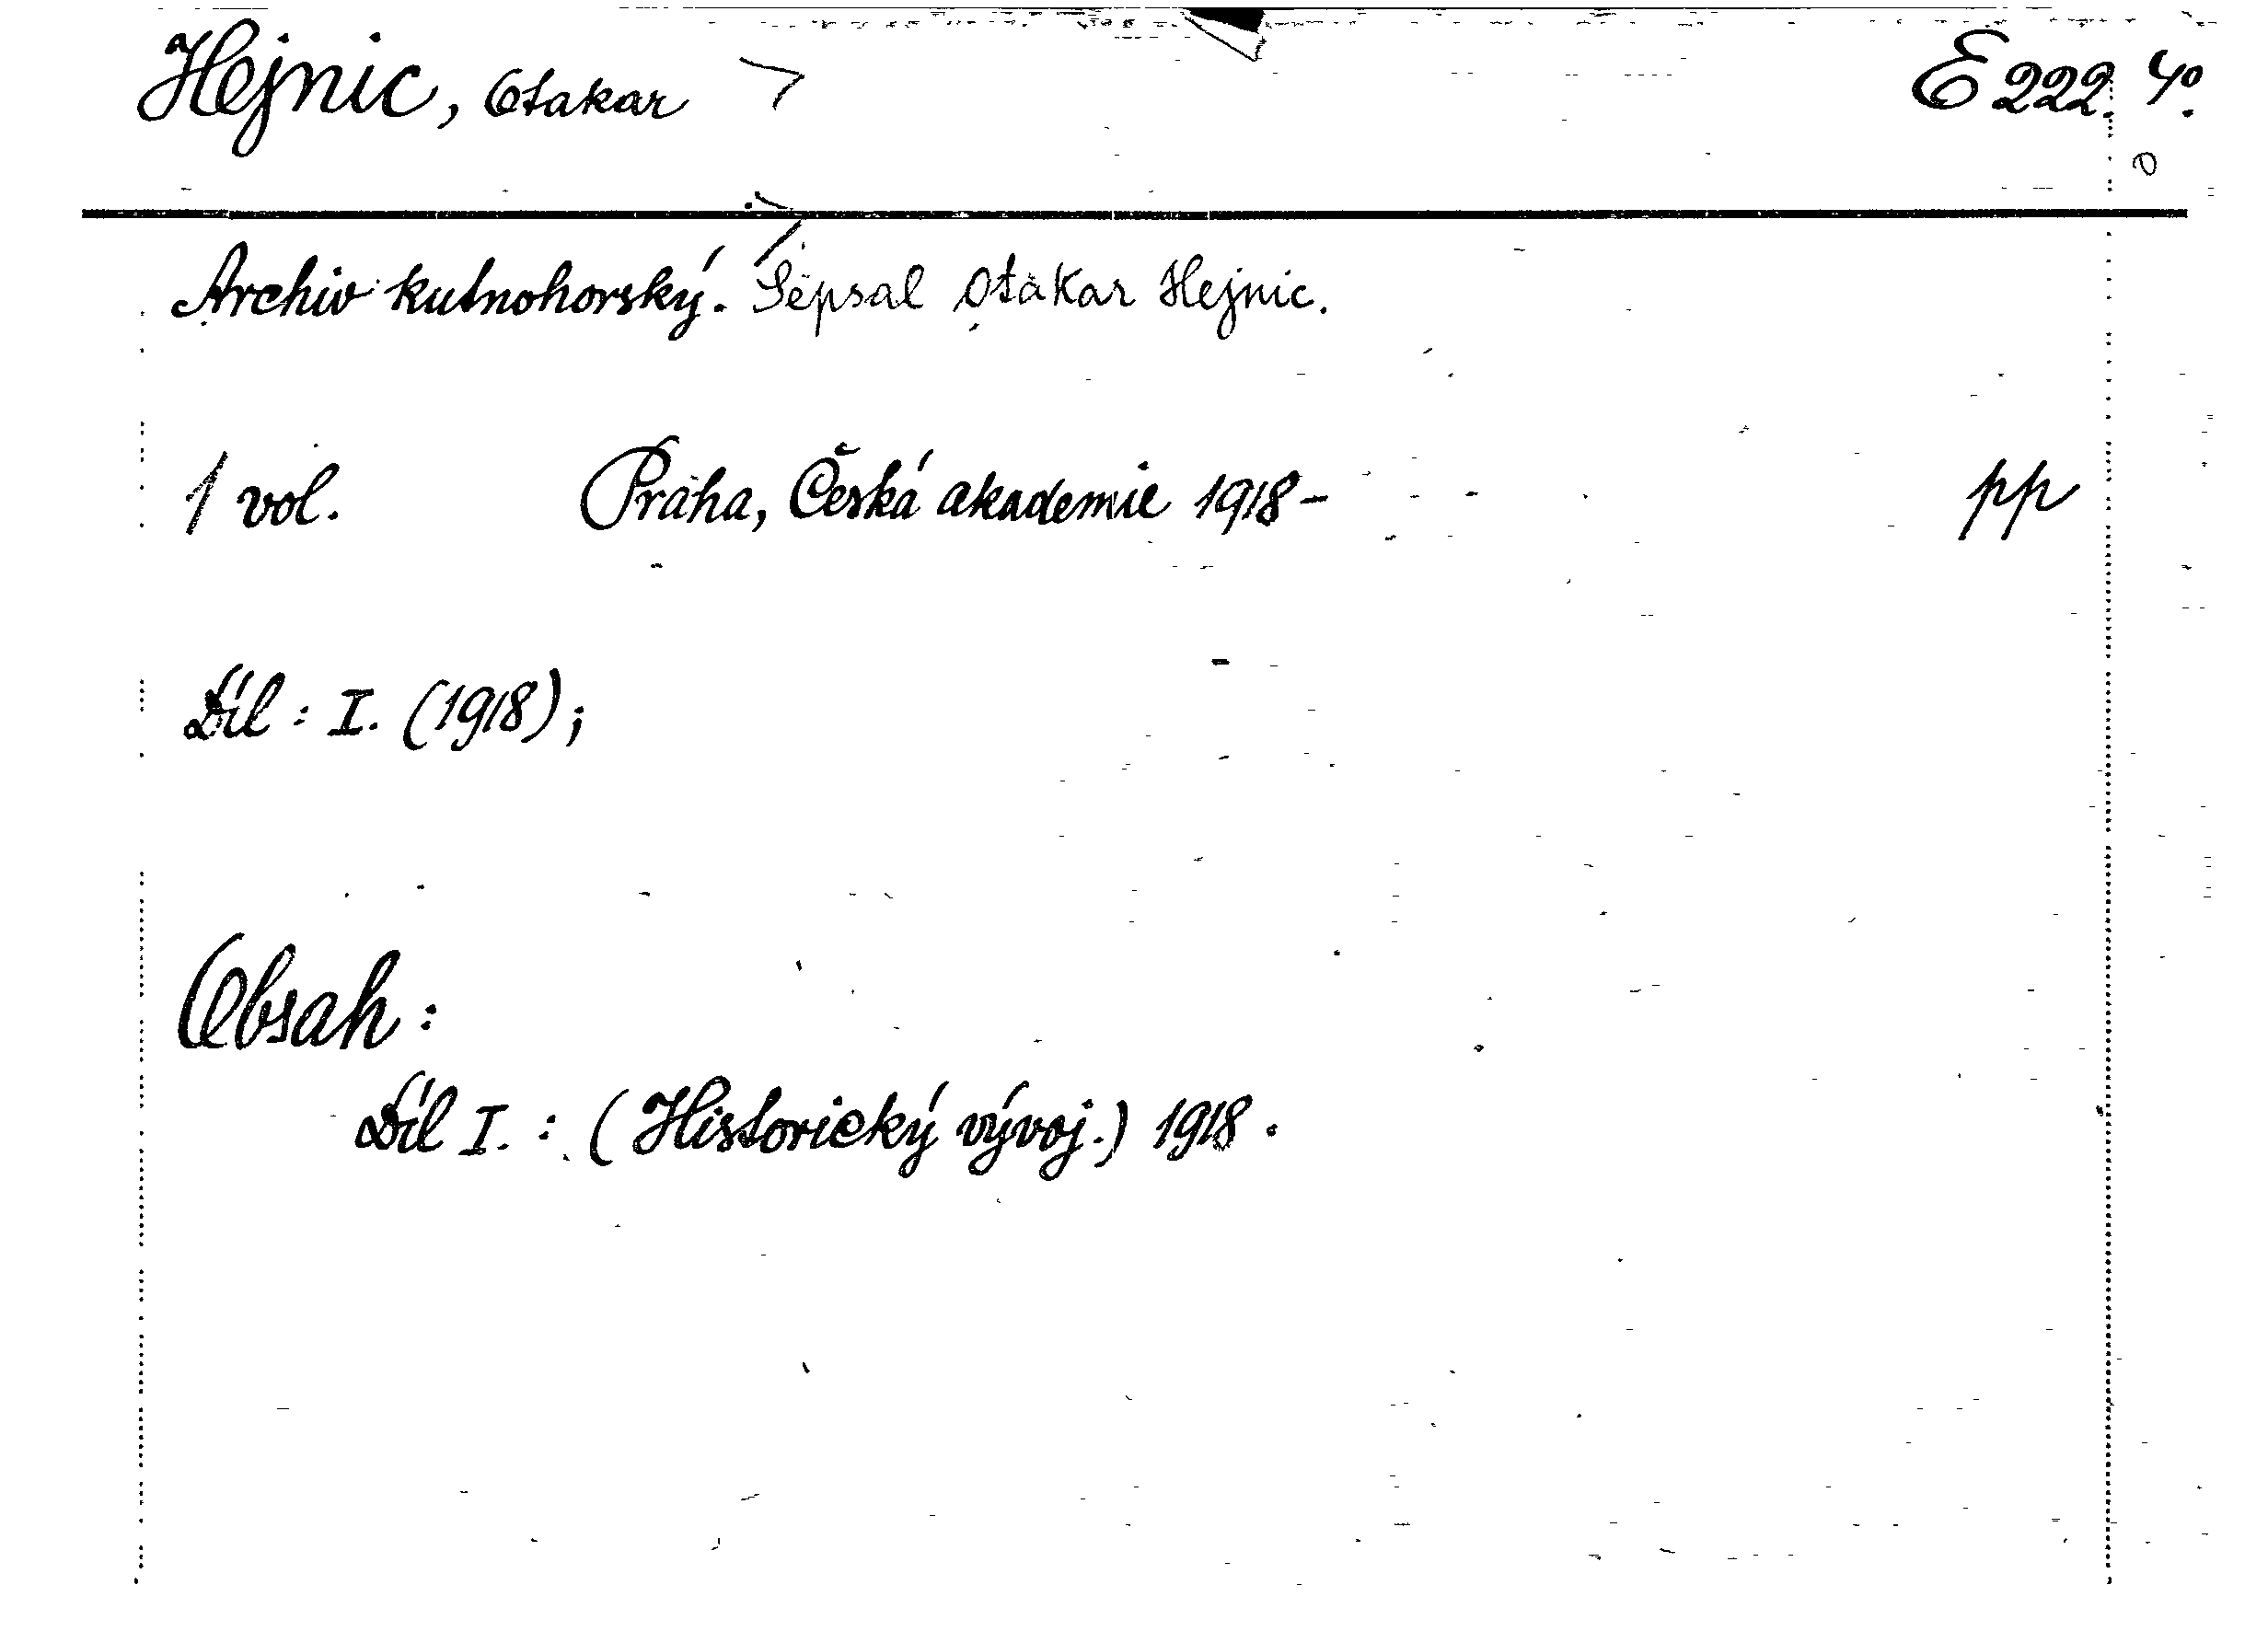 Hejnic, Otakar E 222. 4°.
Archiv kutnohorský. Sepsal Otakar Hejnic.
1 vol. Praha, Česká akademie 1918- pp
Díl: I. (1918);
Obsah:
Díl I.: (Historický vývoj.) 1918.